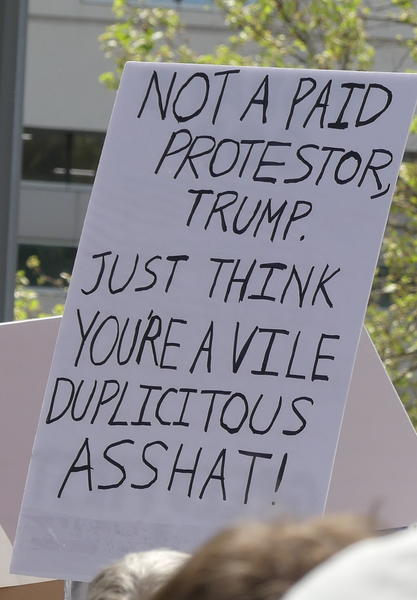 NOT A PAID
PROTESTOR,
TRUMP.
JUST THINK
YOU'RE A VILE
DUPLICITOUS
ASSHAT!